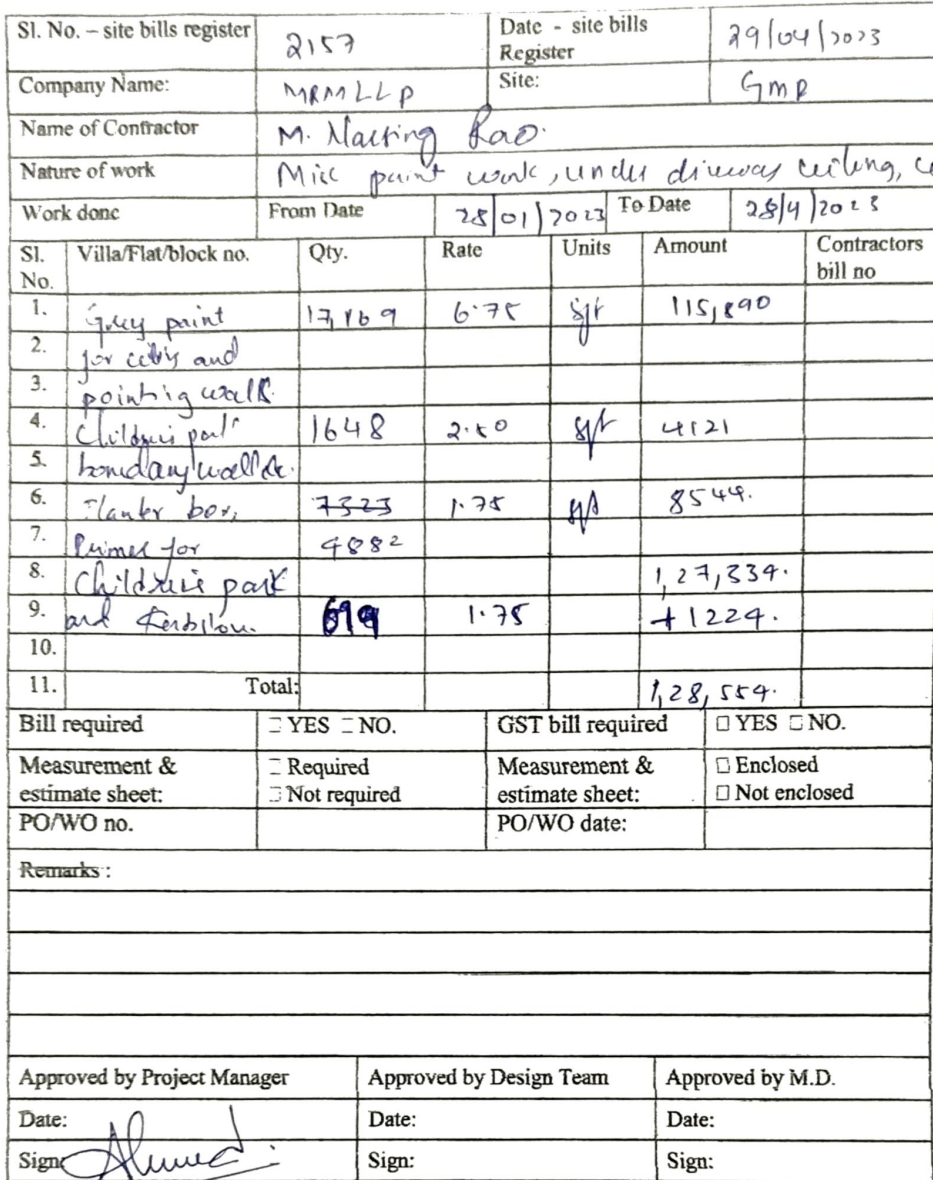 Sl. No. – site bills register 2157 Date - site bills Register 29/04/2023
Company Name: MRMLLP Site: GMR
Name of Contractor M. Narsing Rao.
Nature of work Misc paint work, under driveway ceiling,
Work done From Date 28/01/2023 To Date 28/4/2023
Sl. No. Villa/Flat/block no. Qty. Rate Units Amount Contractors bill no
1. Grey paint 17,169 6.75 sft 115,890
2. for and
3. walls
4. Children's park 1648 2.50 sft 4121
5. boundary wall &
6. Planter box, 7323 1.75 sft 8544.
7. Primer for 4882
8. Children's park 1,27,334.
9. and 699 1.75 +1224.
10.
11. Total: 1,28,554.
Bill required □ YES □ NO. GST bill required □ YES □ NO.
Measurement & estimate sheet: □ Required □ Not required Measurement & estimate sheet: □ Enclosed □ Not enclosed
PO/WO no. PO/WO date:
Remarks :
Approved by Project Manager Approved by Design Team Approved by M.D.
Date: Date: Date:
Sign: Sign: Sign: